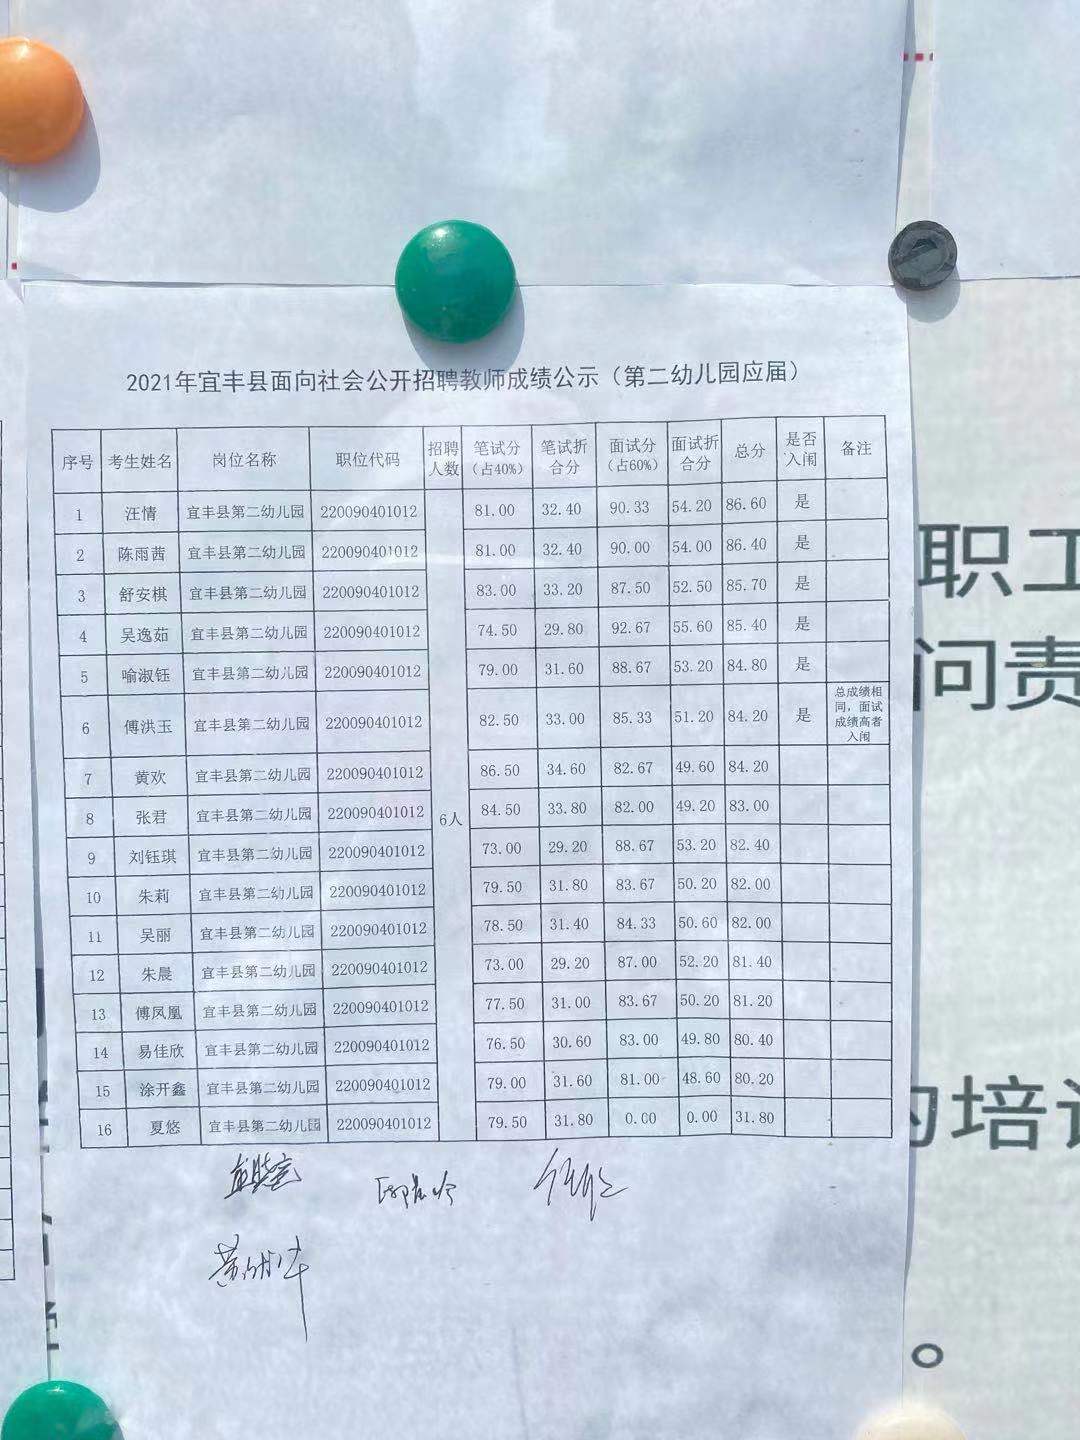 2021年宜丰县面向社会公开招聘教师成绩公示（第二幼儿园应届）
序号 考生姓名 岗位名称 职位代码 招聘人数 笔试分（占40%） 笔试折合分 面试分（占60%） 面试折合分 总分 是否入闱 备注
1 汪情 宜丰县第二幼儿园 220090401012 81.00 32.40 90.33 54.20 86.60 是
2 陈雨茜 宜丰县第二幼儿园 220090401012 81.00 32.40 90.00 54.00 86.40 是
3 舒安棋 宜丰县第二幼儿园 220090401012 83.00 33.20 87.50 52.50 85.70 是
4 吴逸茹 宜丰县第二幼儿园 220090401012 74.50 29.80 92.67 55.60 85.40 是
5 喻淑钰 宜丰县第二幼儿园 220090401012 79.00 31.60 88.67 53.20 84.80 是
6 傅洪玉 宜丰县第二幼儿园 220090401012 82.50 33.00 85.33 51.20 84.20 是 总成绩相同，面试成绩高者入闱
7 黄欢 宜丰县第二幼儿园 220090401012 86.50 34.60 82.67 49.60 84.20
8 张君 宜丰县第二幼儿园 220090401012 6人 84.50 33.80 82.00 49.20 83.00
9 刘钰琪 宜丰县第二幼儿园 220090401012 73.00 29.20 88.67 53.20 82.40
10 朱莉 宜丰县第二幼儿园 220090401012 79.50 31.80 83.67 50.20 82.00
11 吴丽 宜丰县第二幼儿园 220090401012 78.50 31.40 84.33 50.60 82.00
12 朱晨 宜丰县第二幼儿园 220090401012 73.00 29.20 87.00 52.20 81.40
13 傅凤凰 宜丰县第二幼儿园 220090401012 77.50 31.00 83.67 50.20 81.20
14 易佳欣 宜丰县第二幼儿园 220090401012 76.50 30.60 83.00 49.80 80.40
15 涂开鑫 宜丰县第二幼儿园 220090401012 79.00 31.60 81.00 48.60 80.20
16 夏悠 宜丰县第二幼儿园 220090401012 79.50 31.80 0.00 0.00 31.80
职工
问责
的培训
。